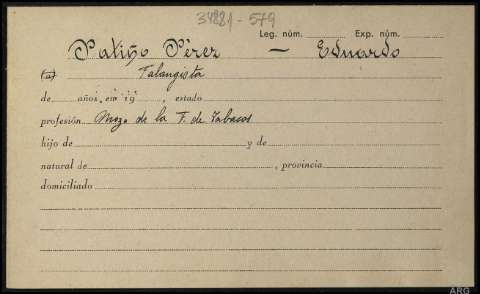 34881-579
Leg. núm. Exp. núm.
Patiño Pérez — Eduardo
(a) Falangista
de años, en 19 , estado
profesión Mozo de la F. de Tabacos
hijo de y de
natural de , provincia
domiciliado
ARG